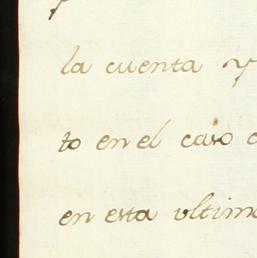 la cuenta y
to en el caso
en esta ultim